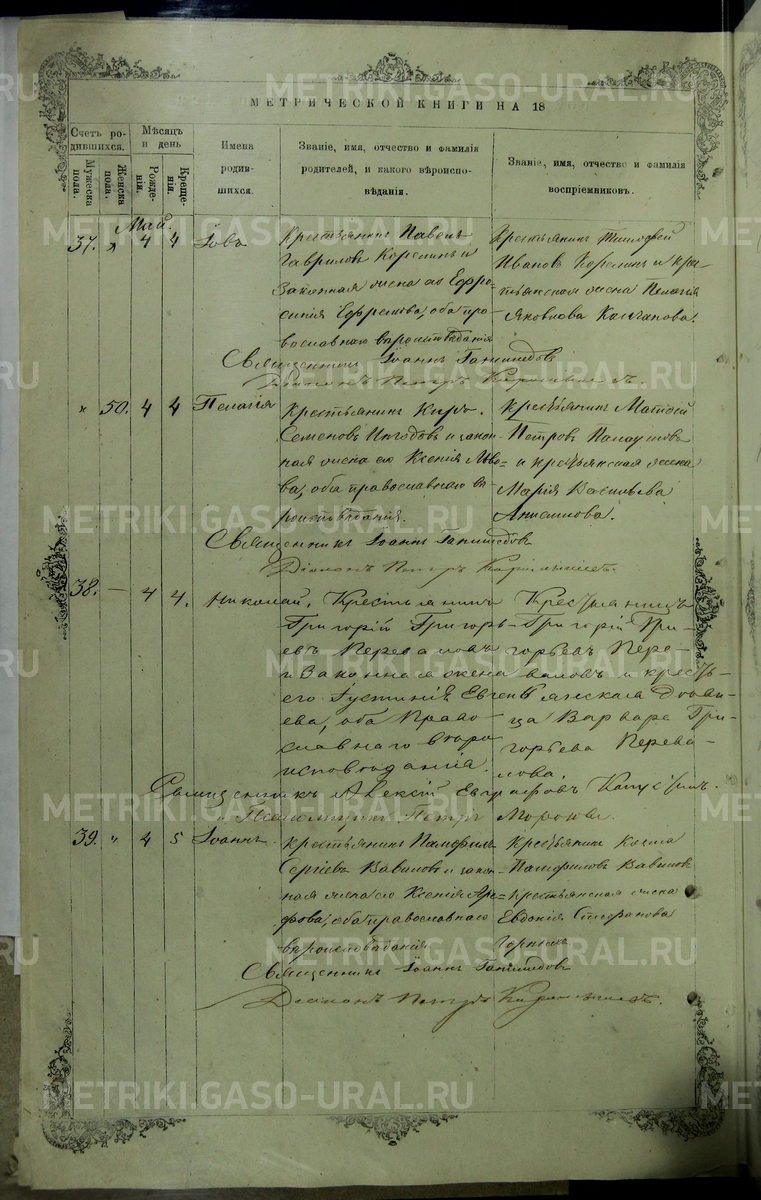 МЕТРИЧЕСКОЙ КНИГИ НА 18
Счетъ ро-
дившихся.
Мѣсяцъ
и день
Имена
родив-
шихся.
Званіе, имя, отчество и фамилія
родителей, и какого вѣроиспо-
вѣданія.
Званіе, имя, отчество и фамилія
воспріемниковъ.
Мужеска пола.
Женска пола.
Рожде-
нія.
Креще-
нія.
Май.
37. " 4 4 Іовъ
Крестьянинъ Павелъ
Гавриловъ Корелинъ и
законная жена его Ефро-
синія Ефремова, оба пра-
вославнаго вѣроисповѣданія
Крестьянинъ Тимофей
Ивановъ Корелинъ и кре-
стьянская жена Пелагія
Яковлова
Священникъ Іоаннъ
Діаконъ Петръ
" 50. 4 4 Пелагія
Крестьянинъ Киръ
Семеновъ и закон-
ная жена его Ксенія
ва, оба православнаго вѣ-
роисповѣданія.
Крестьянинъ Матвей
Петровъ
и крестьянская жена
Марія Васильева
Анисимова.
Священникъ Іоаннъ
Діаконъ Петръ
38. — 4 4. Николай,
Крестьянинъ
Григорій Григорь-
евъ Переваловъ
и Законная жена
его Густинія Евгень-
ева, оба Право-
славнаго вѣро
исповѣданія.
Крестьянинъ
Григорій Гри-
горьевъ Пере-
валовъ и кресть-
янская дѣви-
ца Варвара Гри-
горьева Перева-
лова.
Священникъ Алексій
Псаломщикъ Петръ Морозовъ.
39. " 4 5 Іоаннъ
Крестьянинъ Памфилъ
Сергіевъ Вавиловъ и закон-
ная жена его Ксенія Аре-
фова, оба православнаго
вѣроисповѣданія
Крестьянинъ Косма
Памфиловъ Вавиловъ
и крестьянская жена
Евдокія Стефанова
Священникъ Іоаннъ
Діаконъ Петръ
METRIKI.GASO-URAL.RU